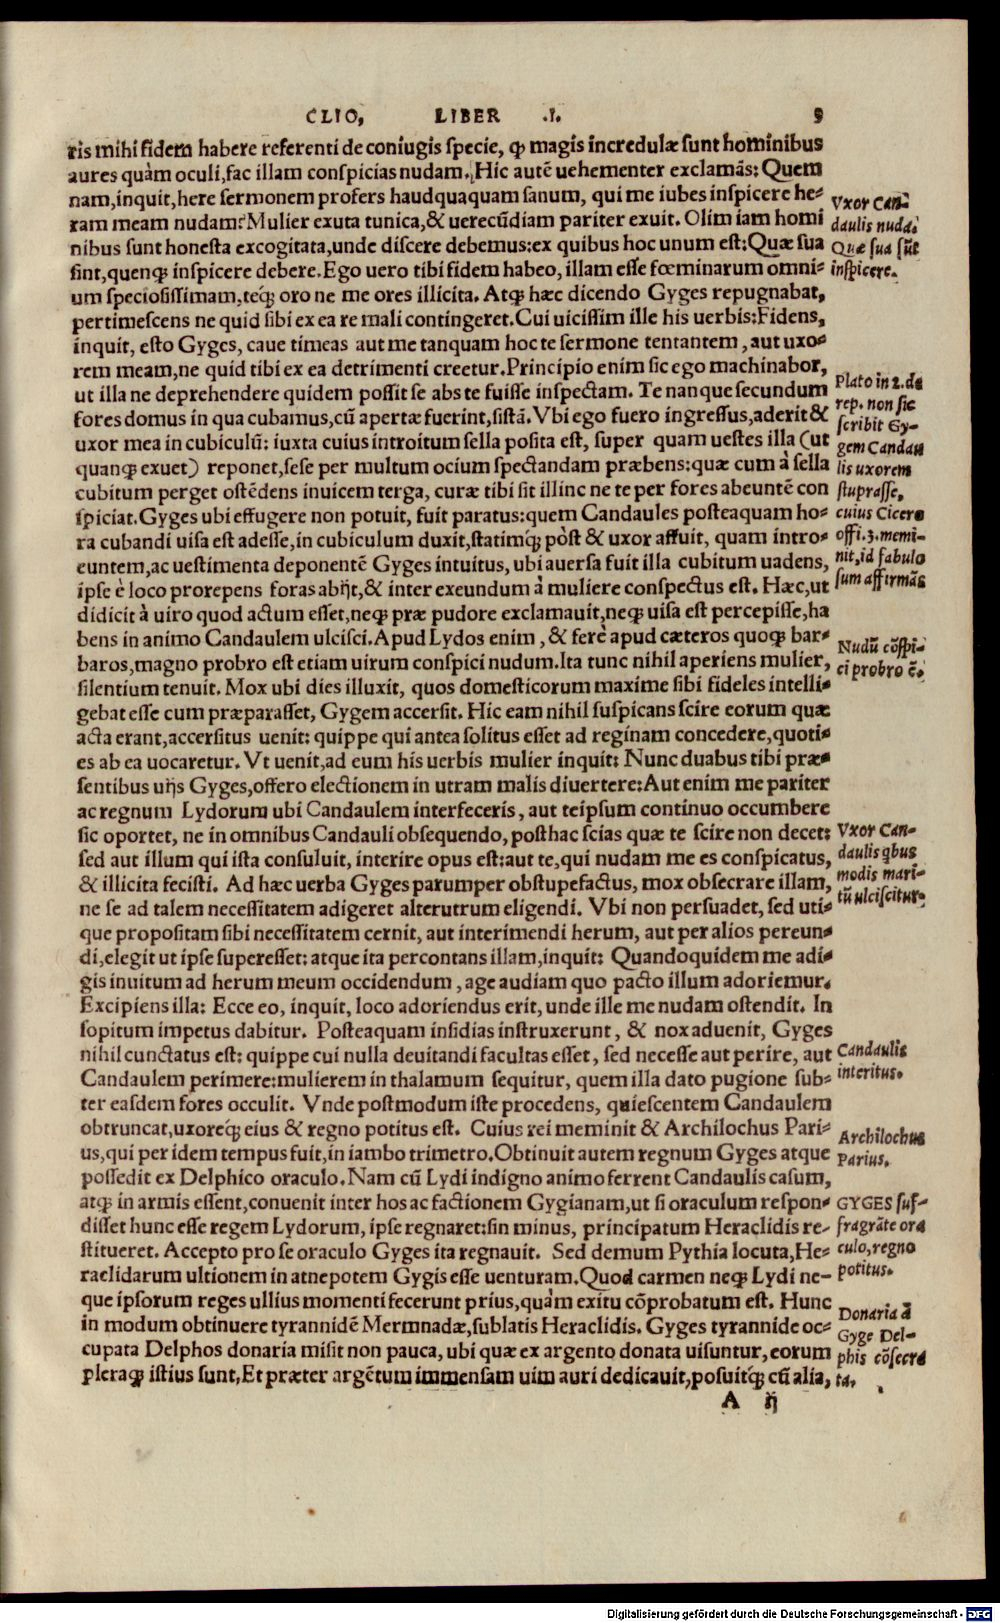 CLIO, LIBER .I. 9
ris mihi fidem habere referenti de coniugis specie, ꝙ magis incredulæ sunt hominibus
aures quàm oculi, fac illam conspicias nudam. Hic autē uehementer exclamās: Quem
nam, inquit, here sermonem profers haudquaquam sanum, qui me iubes inspicere he-
ram meam nudam? Mulier exuta tunica, & uerecūdiam pariter exuit. Olim iam homi
nibus sunt honesta excogitata, unde discere debemus: ex quibus hoc unum est: Quæ sua
sint, quenqꝫ inspicere debere. Ego uero tibi fidem habeo, illam esse fœminarum omni-
um speciosissimam, teqꝫ́ oro ne me ores illicita. Atqꝫ hæc dicendo Gyges repugnabat,
pertimescens ne quid sibi ex ea re mali contingeret. Cui uicissim ille his uerbis: Fidens,
inquit, esto Gyges, caue timeas aut me tanquam hoc te sermone tentantem, aut uxo-
rem meam, ne quid tibi ex ea detrimenti creetur. Principio enim sic ego machinabor,
ut illa ne deprehendere quidem possit se abs te fuisse inspectam. Te nanque secundum
fores domus in qua cubamus, cū apertæ fuerint, sistā. Vbi ego fuero ingressus, aderit &
uxor mea in cubiculū: iuxta cuius introitum sella posita est, super quam uestes illa (ut
quanqꝫ exuet) reponet, sese per multum ocium spectandam præbens: quæ cum à sella
cubitum perget ostēdens inuicem terga, curæ tibi sit illinc ne te per fores abeuntē con
spiciat. Gyges ubi effugere non potuit, fuit paratus: quem Candaules posteaquam ho-
ra cubandi uisa est adesse, in cubiculum duxit, statimqꝫ́ pòst & uxor affuit, quam intro-
euntem, ac uestimenta deponentē Gyges intuitus, ubi auersa fuit illa cubitum uadens,
ipse è loco prorepens foras abijt, & inter exeundum à muliere conspectus est. Hæc, ut
didicit à uiro quod actum esset, neqꝫ præ pudore exclamauit, neqꝫ uisa est percepisse, ha
bens in animo Candaulem ulcisci. Apud Lydos enim, & ferè apud cæteros quoqꝫ bar-
baros, magno probro est etiam uirum conspici nudum. Ita tunc nihil aperiens mulier,
silentium tenuit. Mox ubi dies illuxit, quos domesticorum maxime sibi fideles intelli-
gebat esse cum præparasset, Gygem accersit. Hic eam nihil suspicans scire eorum quæ
acta erant, accersitus uenit: quippe qui antea solitus esset ad reginam concedere, quoti-
es ab ea uocaretur. Vt uenit, ad eum his uerbis mulier inquit: Nunc duabus tibi præ-
sentibus uijs Gyges, offero electionem in utram malis diuertere: Aut enim me pariter
ac regnum Lydorum ubi Candaulem interfeceris, aut teipsum continuo occumbere
sic oportet, ne in omnibus Candauli obsequendo, posthac scias quæ te scire non decet:
sed aut illum qui ista consuluit, interire opus est: aut te, qui nudam me es conspicatus,
& illicita fecisti. Ad hæc uerba Gyges parumper obstupefactus, mox obsecrare illam,
ne se ad talem necessitatem adigeret alterutrum eligendi. Vbi non persuadet, sed uti-
que propositam sibi necessitatem cernit, aut interimendi herum, aut per alios pereun-
di, elegit ut ipse superesset: atque ita percontans illam, inquit: Quandoquidem me adi-
gis inuitum ad herum meum occidendum, age audiam quo pacto illum adoriemur.
Excipiens illa: Ecce eo, inquit, loco adoriendus erit, unde ille me nudam ostendit. In
sopitum impetus dabitur. Posteaquam insidias instruxerunt, & nox aduenit, Gyges
nihil cunctatus est: quippe cui nulla deuitandi facultas esset, sed necesse aut perire, aut
Candaulem perimere: mulierem in thalamum sequitur, quem illa dato pugione sub-
ter easdem fores occulit. Vnde postmodum iste procedens, quiescentem Candaulem
obtruncat, uxoreqꝫ́ eius & regno potitus est. Cuius rei meminit & Archilochus Pari-
us, qui per idem tempus fuit, in iambo trimetro. Obtinuit autem regnum Gyges atque
possedit ex Delphico oraculo. Nam cū Lydi indigno animo ferrent Candaulis casum,
atqꝫ in armis essent, conuenit inter hos ac factionem Gygianam, ut si oraculum respon-
disset hunc esse regem Lydorum, ipse regnaret: sin minus, principatum Heraclidis re-
stitueret. Accepto pro se oraculo Gyges ita regnauit. Sed demum Pythia locuta, He-
raclidarum ultionem in atnepotem Gygis esse uenturam. Quod carmen neqꝫ Lydi ne-
que ipsorum reges ullius momenti fecerunt prius, quàm exitu cōprobatum est. Hunc
in modum obtinuere tyrannidē Mermnadæ, sublatis Heraclidis. Gyges tyrannide oc-
cupata Delphos donaria misit non pauca, ubi quæ ex argento donata uisuntur, eorum
pleraqꝫ istius sunt, Et præter argētum immensam uim auri dedicauit, posuitqꝫ́ cū alia,
A ij
Vxor Can-
daulis nuda.
Quæ sua sūt
inspicere.
Plato in 2. de
rep. non sic
scribit Gy-
gem Candau
lis uxorem
stuprasse,
cuius Cicero
offi. 3. memi-
nit, id fabulo
sum affirmās
Nudū cōspi-
ci probro ē.
Vxor Can-
daulis qbus
modis mari-
tū ulciscitur.
Candaulis
interitus.
Archilochus
Parius.
GYGES suf-
fragāte ora
culo, regno
potitus.
Donaria à
Gyge Del-
phis cōsecra
ta.
Digitalisierung gefördert durch die Deutsche Forschungsgemeinschaft - DFG